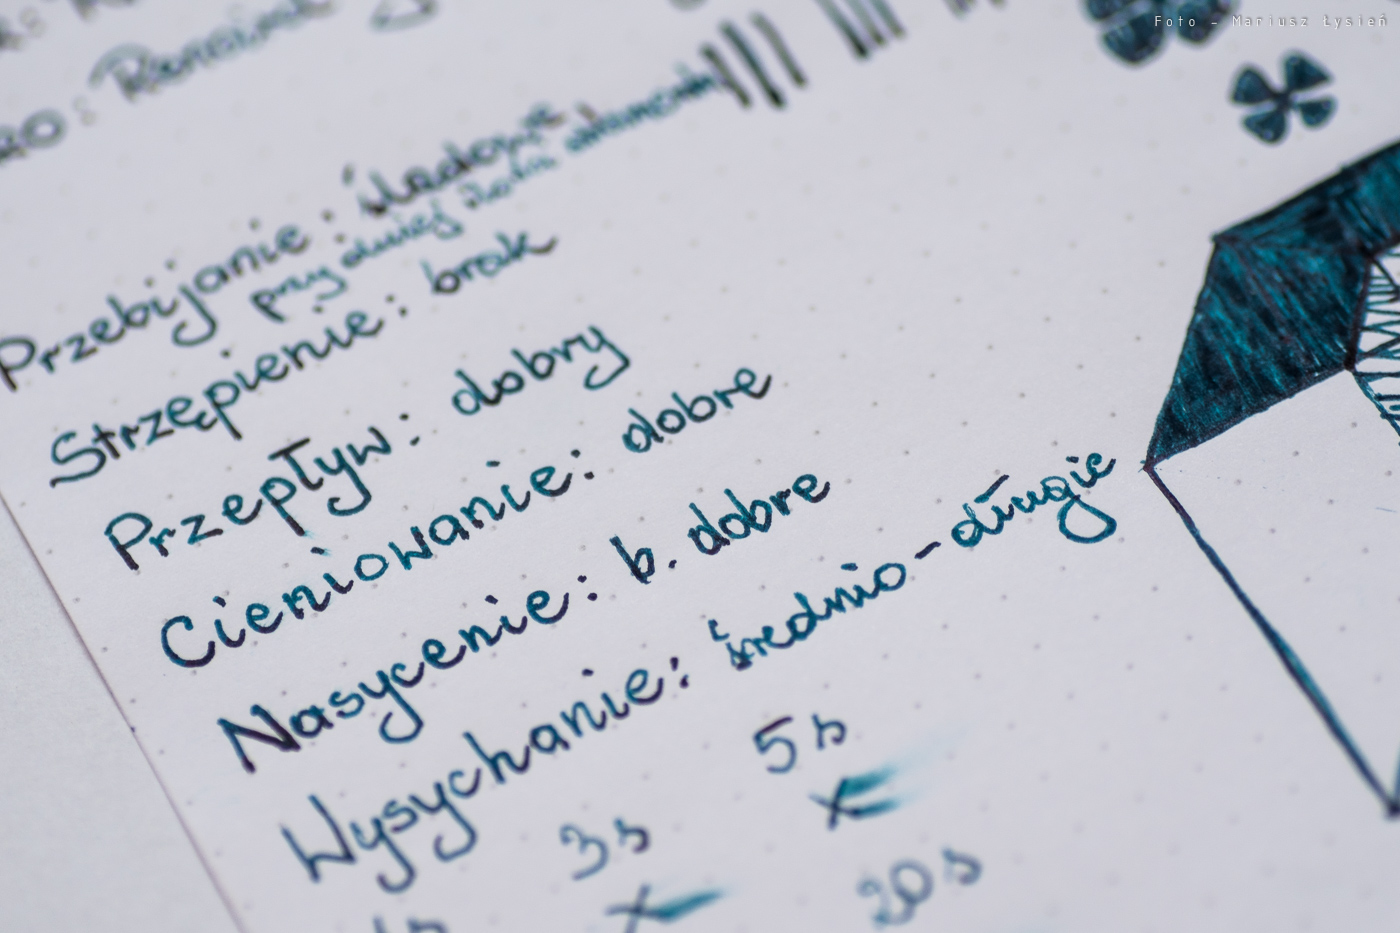 Foto - Mariusz Łysień
Przebijanie: śladowe,
przy dłużej
Strzępienie: brak
Przepływ: dobry
Cieniowanie: dobre
Nasycenie: b. dobre
Wysychanie: średnio-długie
5s
3s
20s